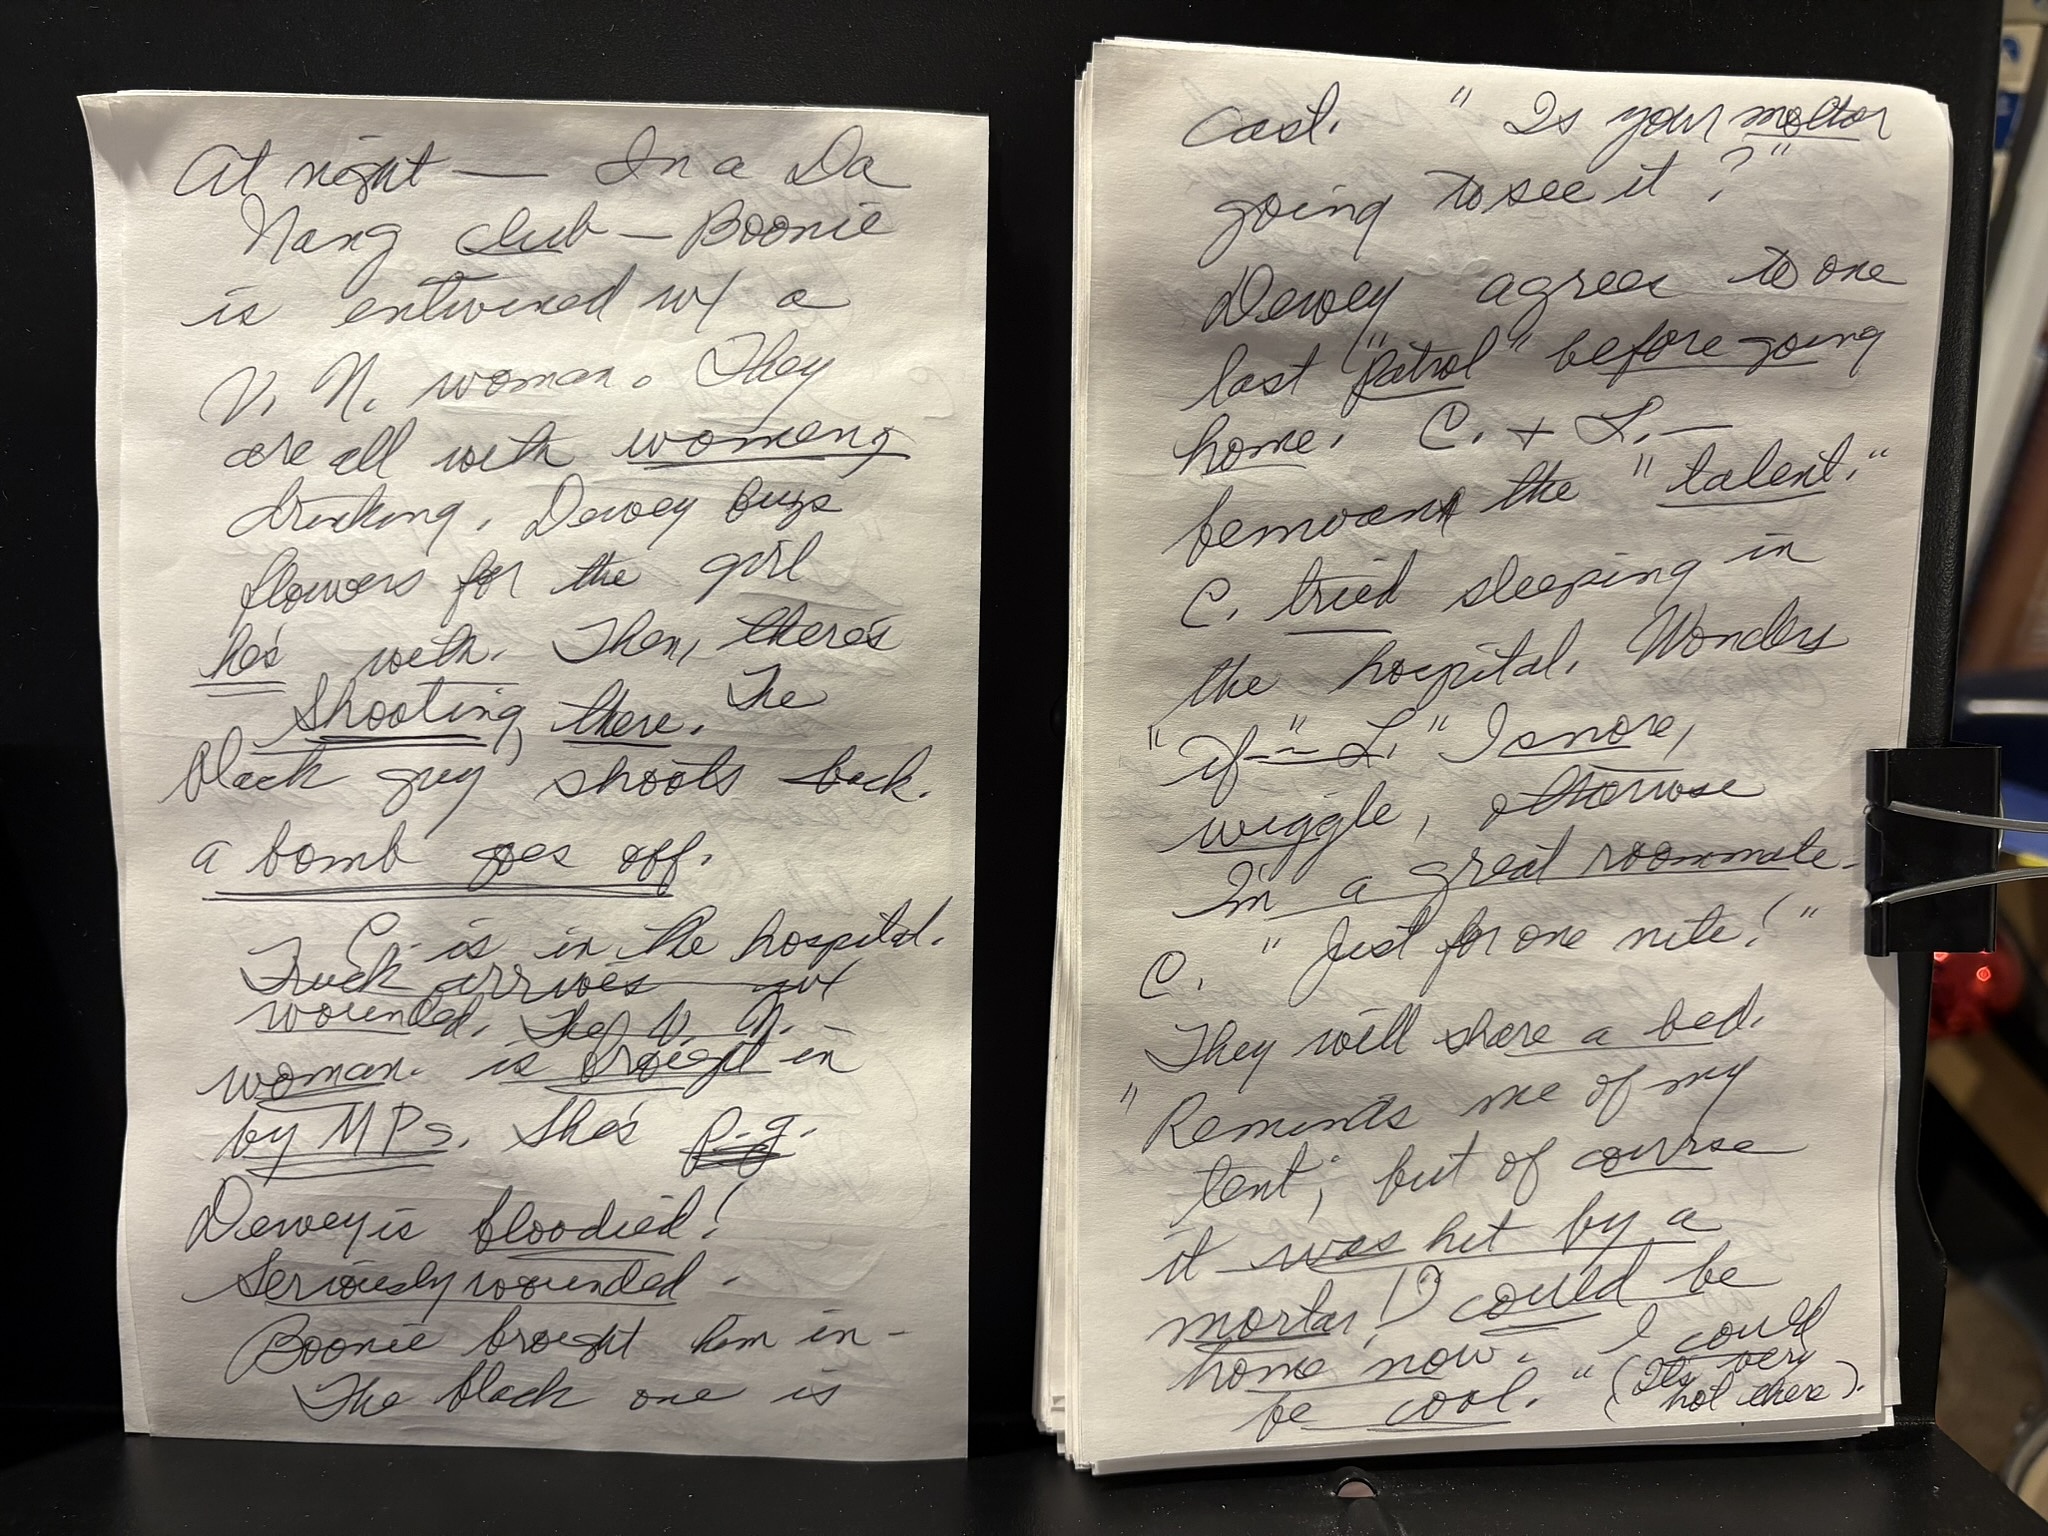 At night — In a Da
Nang club — Boonie
is entwined w/ a
V. N. woman. They
are all with women,
drinking. Dewey buys
flowers for the girl
he's with. Then, there's
shooting, there. The
black guy shoots back.
a bomb goes off.
C. is in the hospital.
Truck arrives w/
wounded. The V. N. –
woman. is brought in
by MPs. She's p.g.
Dewey is bloodied!
Seriously wounded.
Boonie brought him in –
The black one is
cast. " Is your
going to see it?"
Dewey agrees to one
last "patrol" before going
home. C. + L. —
bemoan the "talent."
C. tried sleeping in
the hospital. Wonders
"if –" L. " I snore,
wiggle, otherwise
I'm a great roommate.
C. " Just for one nite!"
They will share a bed.
" Reminds me of my
tent; but of course
it was hit by a
mortar! I could be
home now. I could
be cool." (It's very
hot there).